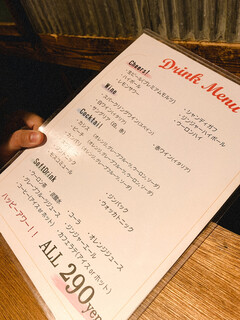 Drink Menu
Cheers!
・生ビール(プレミアムモルツ)
・ハイボール
・レモンサワー
・シャンディガフ
・ジンジャーハイボール
・ウーロンハイ
Wine
・スパークリングワイン(スペイン)
・赤ワイン(イタリア)
・サングリア(白、赤)
Cocktail
・カシス
・ピーチ
・モスコミュール
・ジンバック
・ウォッカトニック
SoftDrink
・ウーロン茶
・グレープフルーツジュース
・コーヒー(アイスorホット)
・コーラ
・オレンジジュース
・ジンジャーエール
・カフェラテ(アイスorホット)
ハッピーアワー!!
ALL 290yen